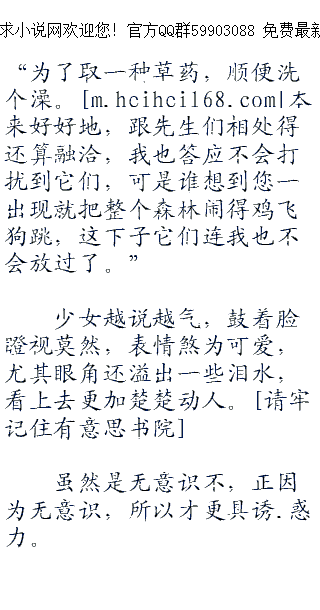 求小说网欢迎您！官方QQ群59903088 免费最新
“为了取一种草药，顺便洗
个澡。[m.hcihcil68.com|本
来好好地，跟先生们相处得
还算融洽，我也答应不会打
扰到它们，可是谁想到您一
出现就把整个森林闹得鸡飞
狗跳，这下子它们连我也不
会放过了。”
少女越说越气，鼓着脸
瞪视莫然，表情煞为可爱，
尤其眼角还溢出一些泪水，
看上去更加楚楚动人。[请牢
记住有意思书院]
虽然是无意识不，正因
为无意识，所以才更具诱.惑
力。